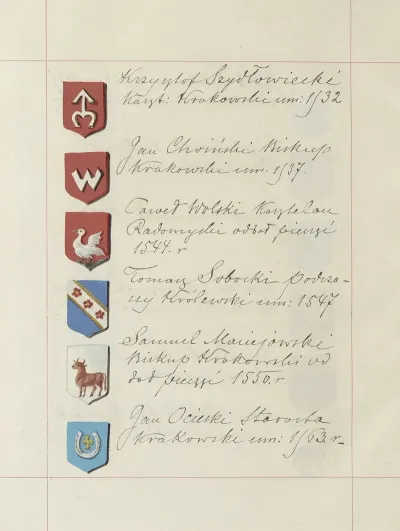 Krzysztof Szydłowiecki
Kaszt: Krakowski um: 1532
Jan Choiński Biskup
Krakowski um. 1537.
Paweł Wolski Kasztelan
Radomski oddał pieczęć
1544. r
Tomasz Sobocki podcza-
szy Królewski um: 1547
Samuel Maciejowski
Biskup Krakowski od
dał pieczęć 1550. r
Jan Ocieski Starosta
Krakowski um: 1563. r
W